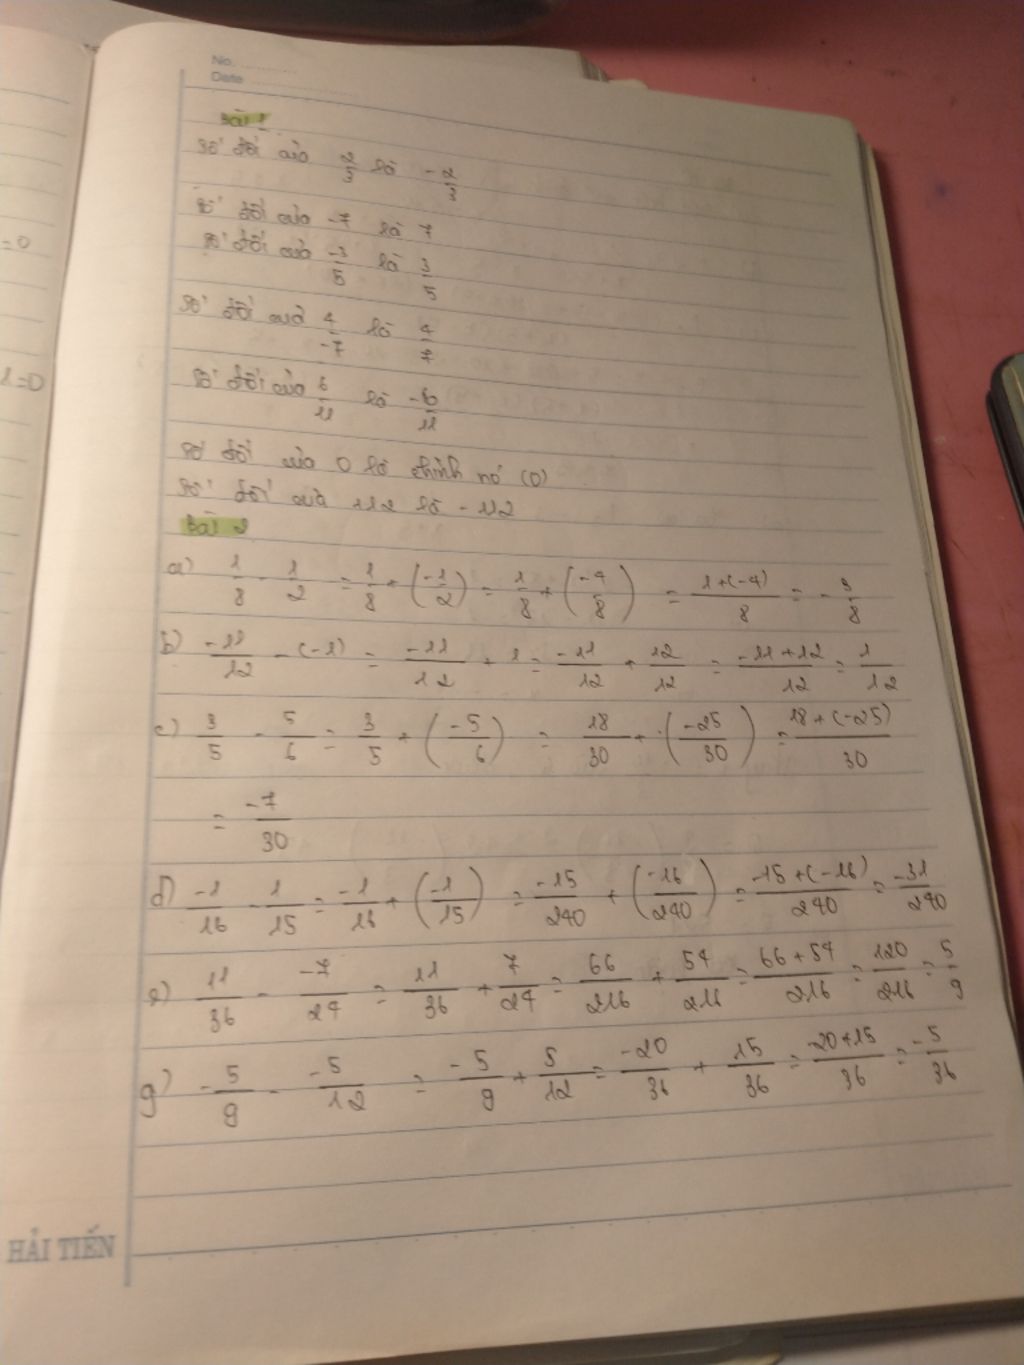 No. ..........
Date ..................
Bài 1
Số đối của 2/3 là -2/3
Số đối của -7 là 7
Số đối của -3/5 là 3/5
Số đối của 4/-7 là 4/7
Số đối của 6/11 là -6/11
Số đối của 0 là chính nó (0)
Số đối của 112 là -112
Bài 2
a) 1/8 - 1/2 = 1/8 + (-1/2) = 1/8 + (-4/8) = 1+(-4)/8 = -3/8
b) -11/12 - (-1) = -11/12 + 1 = -11/12 + 12/12 = -11+12/12 = 1/12
c) 3/5 - 5/6 = 3/5 + (-5/6) = 18/30 + (-25/30) = 18+(-25)/30
= -7/30
d) -1/16 - 1/15 = -1/16 + (-1/15) = -15/240 + (-16/240) = -15+(-16)/240 = -31/240
e) 11/36 - -7/24 = 11/36 + 7/24 = 66/216 + 54/216 = 66+54/216 = 120/216 = 5/9
g) -5/9 - -5/12 = -5/9 + 5/12 = -20/36 + 15/36 = -20+15/36 = -5/36
=0
1=0
HẢI TIẾN